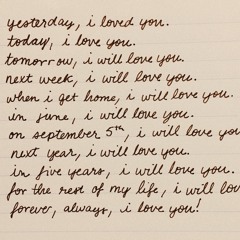 yesterday, i loved you.
today, i love you.
tomorrow, i will love you.
next week, i will love you.
when i get home, i will love you.
in june, i will love you.
on september 5th, i will love you
next year, i will love you.
in five years, i will love you.
for the rest of my life, i will lov
forever, always, i love you!